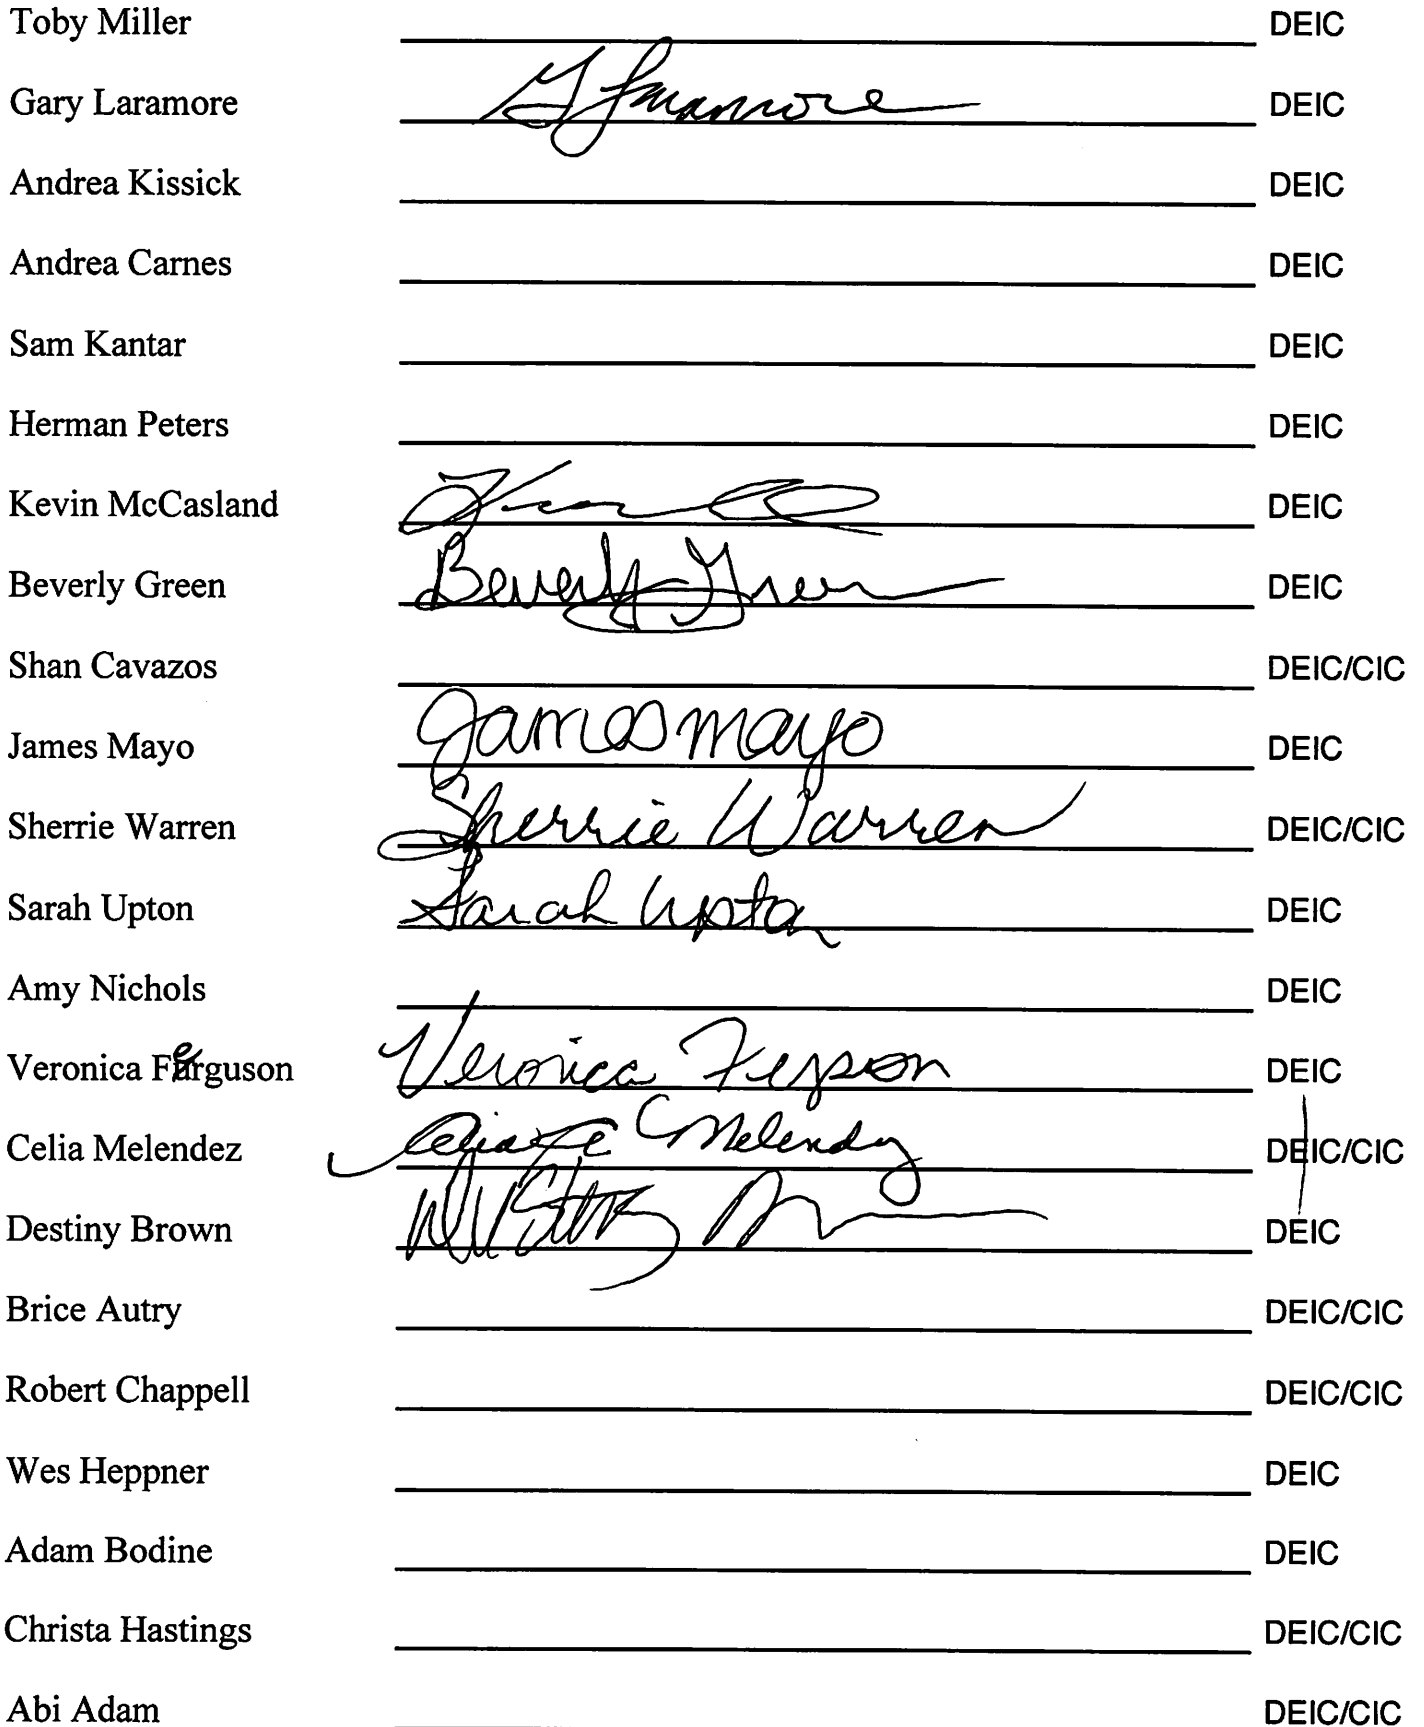 Toby Miller DEIC
Gary Laramore G Laramore DEIC
Andrea Kissick DEIC
Andrea Carnes DEIC
Sam Kantar DEIC
Herman Peters DEIC
Kevin McCasland DEIC
Beverly Green Beverly Green DEIC
Shan Cavazos DEIC/CIC
James Mayo James Mayo DEIC
Sherrie Warren Sherrie Warren DEIC/CIC
Sarah Upton Sarah Upton DEIC
Amy Nichols DEIC
Veronica Ferguson Veronica Ferguson DEIC
Celia Melendez Celia Melendez DEIC/CIC
Destiny Brown DEIC
Brice Autry DEIC/CIC
Robert Chappell DEIC/CIC
Wes Heppner DEIC
Adam Bodine DEIC
Christa Hastings DEIC/CIC
Abi Adam DEIC/CIC